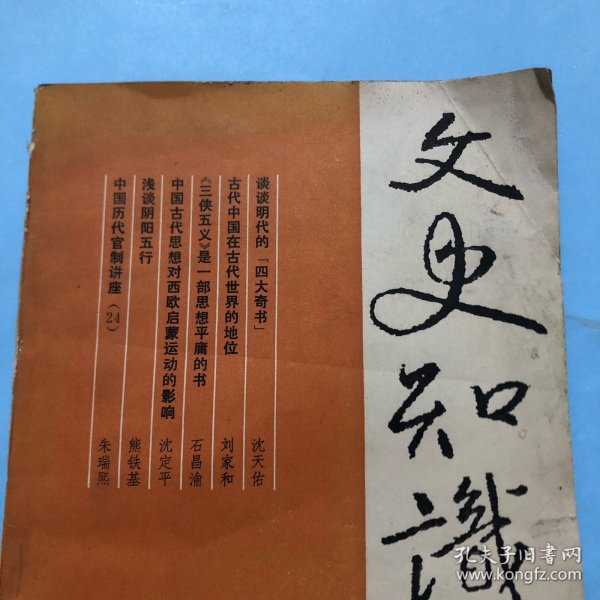 文史知識
谈谈明代的「四大奇书」 沈天佑
古代中国在古代世界的地位 刘家和
《三侠五义》是一部思想平庸的书 石昌渝
中国古代思想对西欧启蒙运动的影响 沈定平
浅谈阴阳五行 熊铁基
中国历代官制讲座（24） 朱瑞熙
孔夫子旧书网
www.kongfz.com